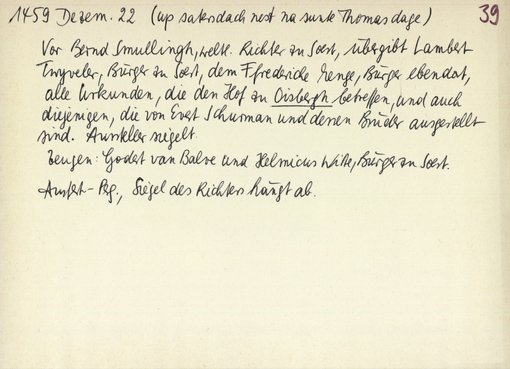 1459 Dezem. 22 (up satersdach nest na sunte Thomas dage) 39
Vor Bernd Smullingh, weltl. Richter zu Soest, übergibt Lambert
Twyveler, Bürger zu Soest, dem Ffrederich Menge, Bürger ebendort,
alle Urkunden, die den Hof zu Oisbergh betreffen, und auch
diejenigen, die von Evert Schurman und dessen Bruder ausgestellt
sind. Aussteller siegelt.
Zeugen: Godert van Balve und Helmicus Witte, Bürger zu Soest.
Ausfert.- Perg., Siegel des Richters hängt ab.